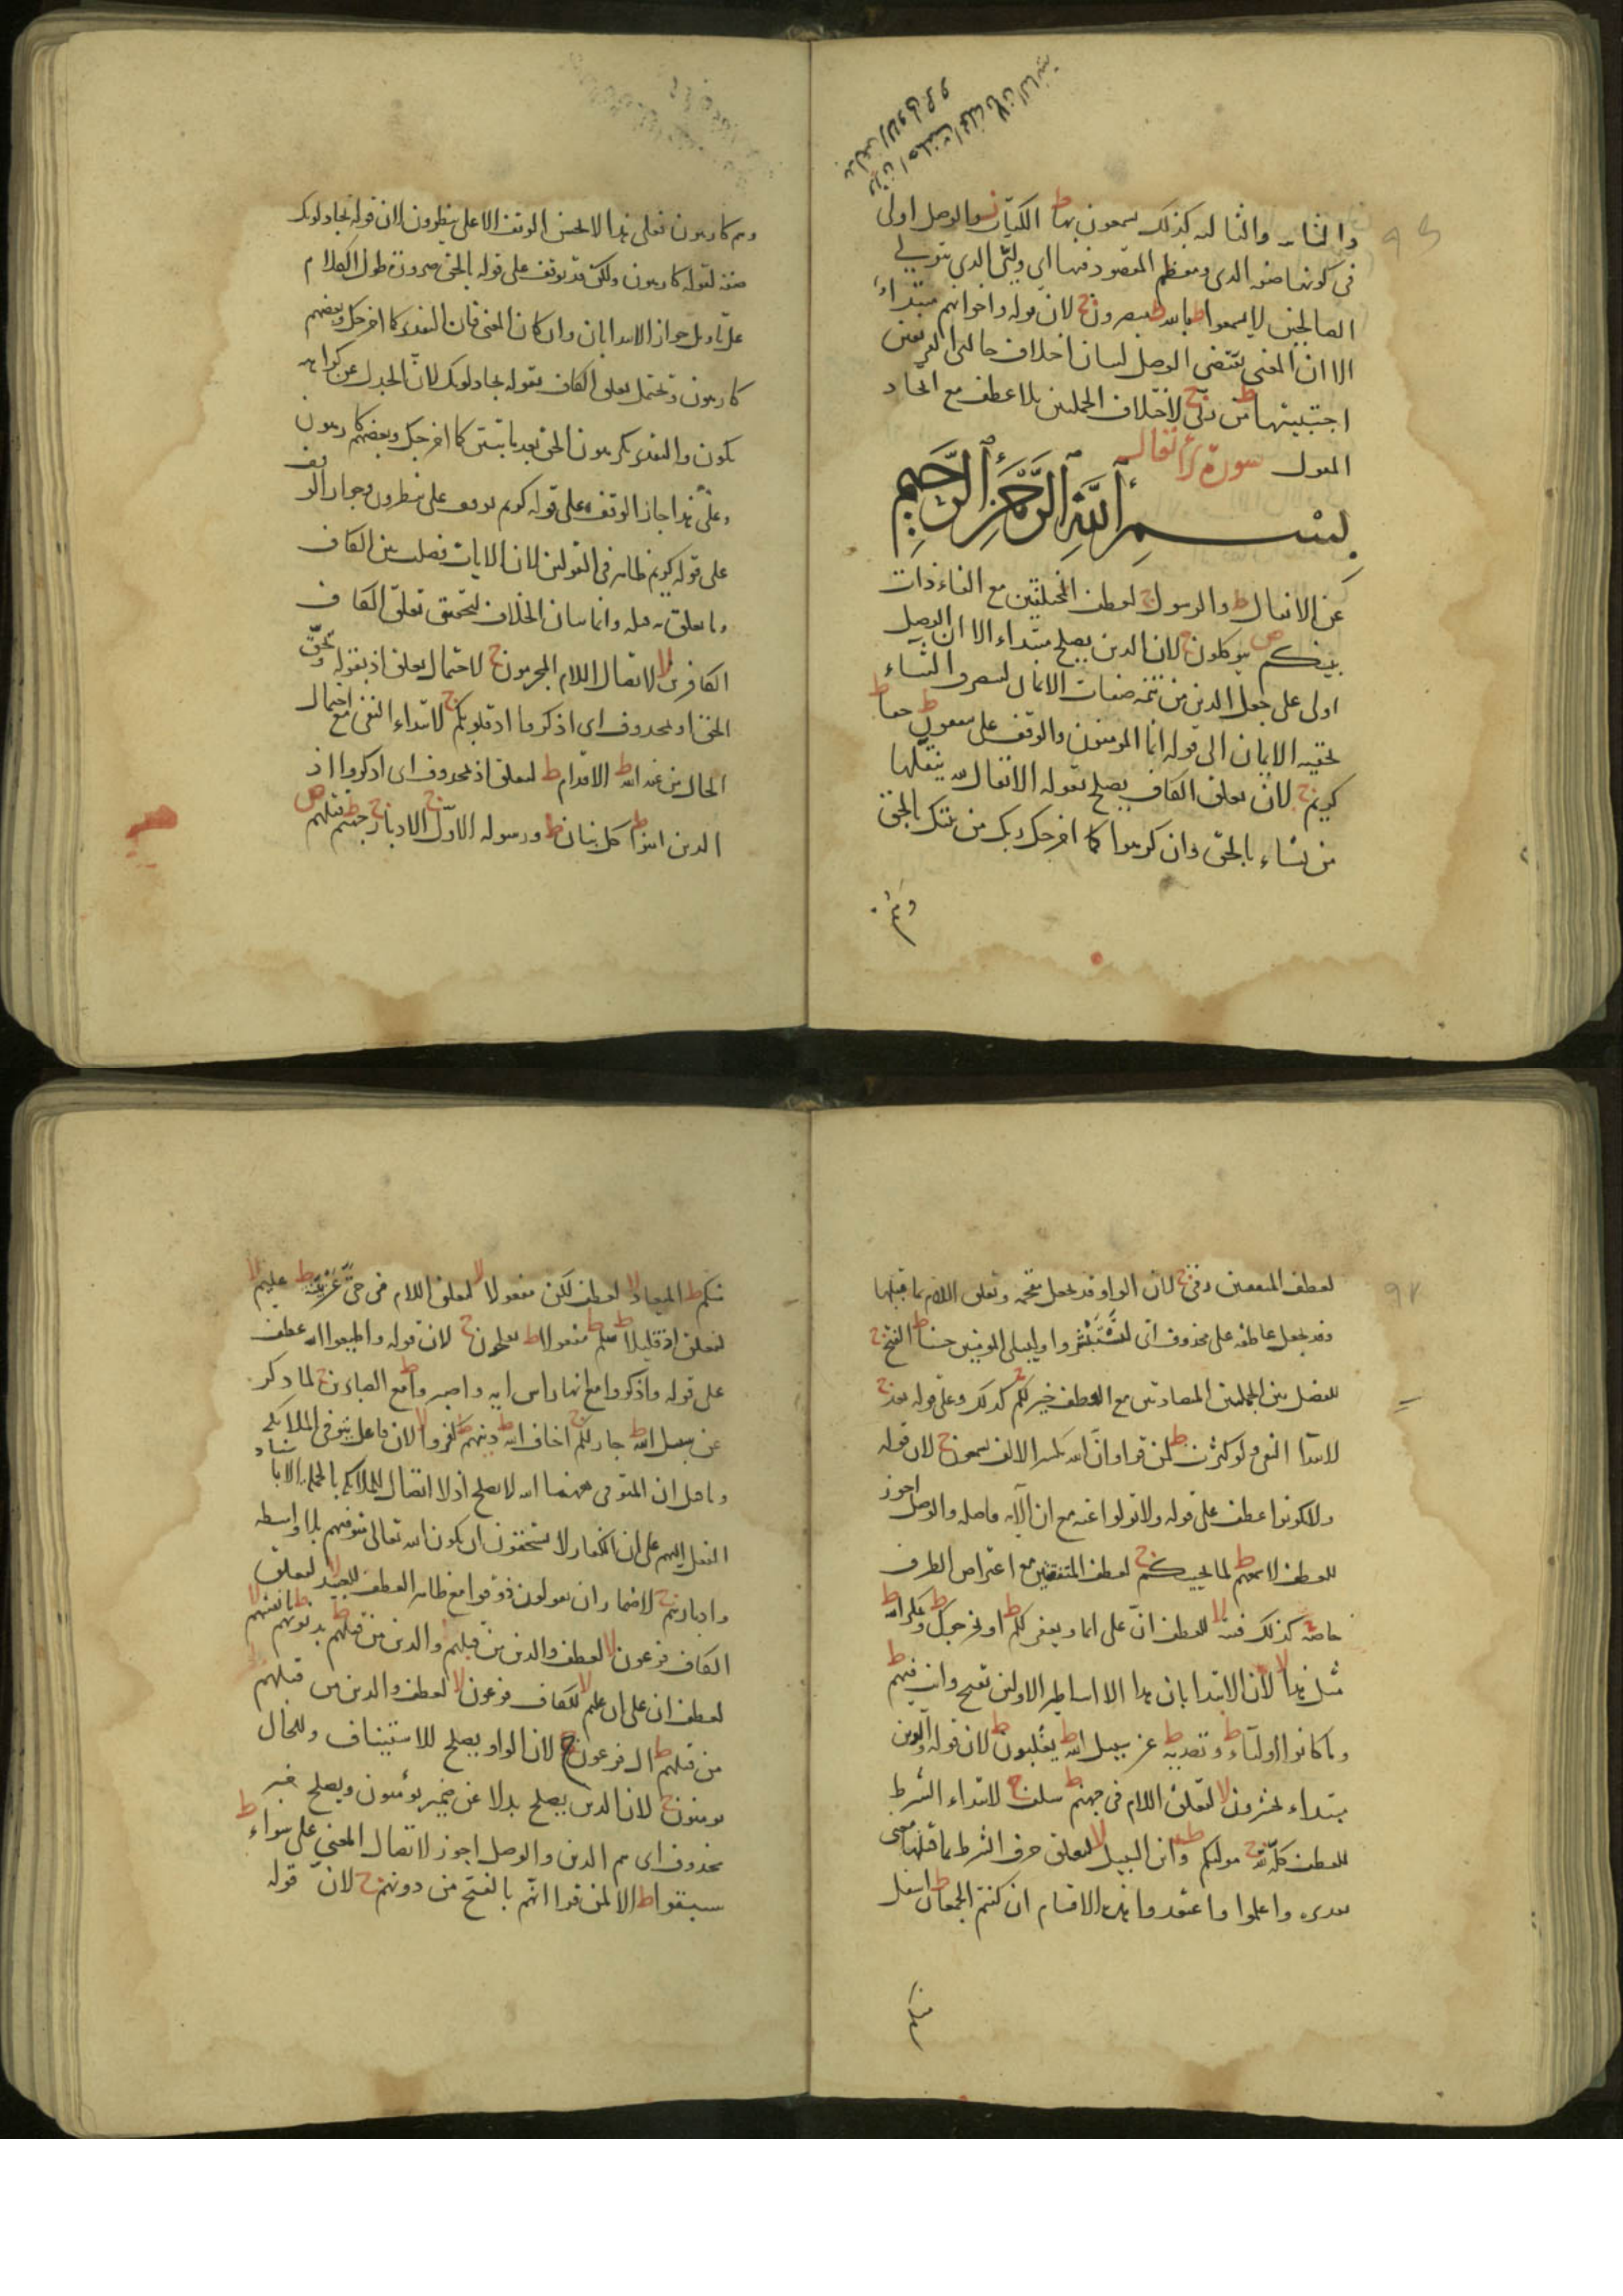 والثانية والثالثة كذلك يسمعون بها ط الكتاب والوصل اولى
في كونها صفة الذي ومعظم المقصود منها اي وليّي الذي يتولى
الصالحين لا يسمعوا ط يبصرون ج لان قوله واخوانهم مبتداء
الا ان المعنى يقتضي الوصل لبيان اختلاف حالتي الفريقين
اجتبيتها ط من ربي ج لاختلاف الجملتين بلا عطف مع اتحاد
المقول سورة الانفال
بسم الله الرحمن الرحيم
عن الانفال ط والرسول ج لعطف المختلفتين مع الفاء ذات
بينكم ص يتوكلون ج لان الذين يصلح مبتداء الا ان الوصل
اولى على جعل الذين من تتمة صفات الايمان
لحقيقة الايمان الى قوله انما المؤمنون والوقف على حقا ط
كريم ج لان تعلق الكاف يصلح بقوله الانفال لله ينفلها
من يشاء بالحق وان كرهوا كما اخرجك ربك من بيتك بالحق
وهم
وهم كارهون فعلى هذا لا يحسن الوقف الا على ينظرون لان قوله يجادلونك
صفة لقوله كارهون ولكن قد يوقف على قوله بالحق ضرورة طول الكلام
على تاويل جواز الابتدا بان وان كان المعنى فان التقدير كما اخرجك وبعضهم
كارهون ويحتمل تعلق الكاف بقوله يجادلونك لان الجدل عن كراهة
يكون والتقدير يكرهون الحق بعد ما تبيّن كما اخرجك وبعضهم كارهون
وعلى هذا جاز الوقف على قوله كريم ووقف على ينظرون وجواز الوقف
على قوله كريم ظاهر في القولين لان الايات فصلت بين الكاف
وما تعلق به قبله وانما بيان الخلاف لتحقيق تعلق الكاف
الكافرين لا لاتصال اللام المجرمون ج لاحتمال تعلق اذ بقوله ويحق
الحق او بمحذوف اى اذكروا اذ قلوبكم ج لابتداء النفي مع احتمال
الحال من عند الله ط الاقدام ط لتعلق اذ بمحذوف اى اذكروا اذ
الذين امنوا ط كل بنان ط ورسوله الاول ج الادبار ج جهنم ط قتلهم ص
لعطف المتفقين رمى ج لان الواو قد يجعل مقحمة وتعلق اللام بما قبلها
وقد يجعل عاطفة على محذوف اى لتستبشروا وليبلى المؤمنين حسنا ط الفتح ج
للفصل بين الجملتين المتضادتين مع العطف خير لكم ج كذلك وعلى قوله نعد ج
لابتدا النفي ولو كثرت ط لمن قرا وان الله بكسر الالف يسمعون ج لان قوله
ولا تكونوا عطف على قوله ولا تولوا عنه مع ان الاية فاصلة والوصل اجوز
للعطف لاسمعهم ط لما يحييكم ج لعطف المتفقتين مع اعتراض الظرف
خاصة ج كذلك فتنة لا للعطف انّ على انما ويغفر لكم ط او يخرجوك ط ويمكر الله ط
مثل هذا لا لان الابتدا بان هذا الا اساطير الاولين قبيح وانت فيهم ط
وما كانوا اولياءه ط وتصدية ط عن سبيل الله ط يغلبون ط لان قوله والذين
مبتداء يحشرون لا لتعلق اللام في جهنم ط سلف ج لابتداء الشرط
للعطف كله لله ج موليكم ط وابن السبيل لا لتعلق حرف الشرط بما قبلها معنى
تقديره واعلموا واعتقدوا هذه الاقسام ان كنتم الجمعان ط اسفل
منكم
منكم ط الميعاد لا لعطف لكن مفعولا لا لتعلق اللام في حيّ عن بيّنة ط عليم لا
لتعلق اذ قليلا ط سلم ط مفعولا ط تفلحون ج لان قوله واطيعوا الله عطف
على قوله واذكروا مع انها راس اية واصبروا ط مع الصابرين ج لما ذكر
عن سبيل الله ط جار لكم ج اخاف الله ط دينهم ط كفروا لا لان فاعل يتوفى الملائكة
وما قيل ان المتوفى ههنا الله لا يصلح اذ لا اتصال للملائكة بالجملة الا باسناد
الفعل اليهم على ان الكفار لا يستحقون ان يكون الله تعالى يتوفيهم بلا واسطة
وادبارهم ج لاضمار ان يقولون ذوقوا مع ظاهر العطف للعبيد لا لتعلق
الكاف فرعون لا لعطف والذين من قبلهم والذين من قبلهم ط بذنوبهم ط بانفسهم لا
لعطف انّ على ان عليم لا للكاف فرعون لا لعطف والذين من قبلهم
من قبلهم ط ال فرعون ج لان الواو يصلح للاستيناف وللحال
يؤمنون ج لان الذين يصلح بدلا عن ضمير يؤمنون ويصلح خبر
محذوف اى هم الذين والوصل اجوز لاتصال المعنى على سواء ط
سبقوا ط الا لمن قرا انهم بالفتح من دونهم ج لان قوله